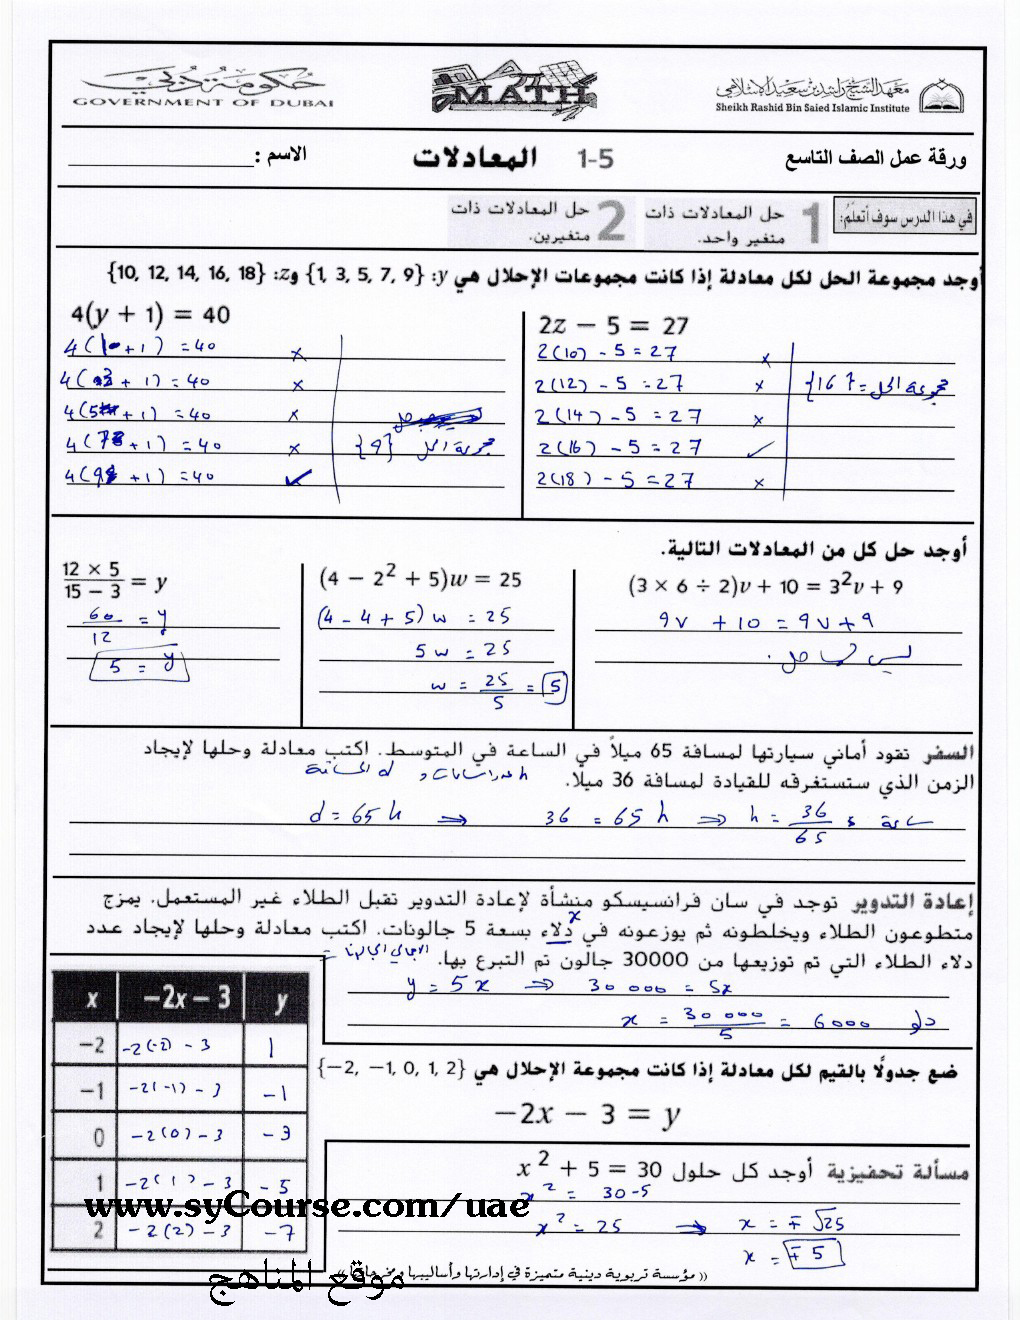 حكومة دبي
GOVERNMENT OF DUBAI
MATH
معهد الشيخ راشد بن سعيد الإسلامي
Sheikh Rashid Bin Saied Islamic Institute
ورقة عمل الصف التاسع
1-5 المعادلات
الاسم :
في هذا الدرس سوف أتعلم:
1 حل المعادلات ذات متغير واحد.
2 حل المعادلات ذات متغيرين.
أوجد مجموعة الحل لكل معادلة إذا كانت مجموعات الإحلال هي y: {1, 3, 5, 7, 9} وz: {10, 12, 14, 16, 18}
2z − 5 = 27
2(10) - 5 = 27 ×
2(12) - 5 = 27 ×
2(14) - 5 = 27 ×
2(16) - 5 = 27 ✓
2(18) - 5 = 27 ×
مجموعة الحل = {16}
4(y + 1) = 40
4(1+1) = 40 ×
4(3+1) = 40 ×
4(5+1) = 40 ×
4(7+1) = 40 ×
4(9+1) = 40 ✓
مجموعة الحل {9}
أوجد حل كل من المعادلات التالية.
(3 × 6 ÷ 2)v + 10 = 3²v + 9
9v + 10 = 9v + 9
ليس لها حل.
(4 − 2² + 5)w = 25
(4 - 4 + 5) w = 25
5w = 25
w = 25/5 = 5
12 × 5 / 15 − 3 = y
60/12 = y
5 = y
السفر تقود أماني سيارتها لمسافة 65 ميلاً في الساعة في المتوسط. اكتب معادلة وحلها لإيجاد
الزمن الذي ستستغرقه للقيادة لمسافة 36 ميلا.
h عدد الساعات و d المسافة
d = 65 h ⇒ 36 = 65 h ⇒ h = 36/65 ساعة
إعادة التدوير توجد في سان فرانسيسكو منشأة لإعادة التدوير تقبل الطلاء غير المستعمل. يمزج
متطوعون الطلاء ويخلطونه ثم يوزعونه في دلاء بسعة 5 جالونات. اكتب معادلة وحلها لإيجاد عدد
x
دلاء الطلاء التي تم توزيعها من 30000 جالون تم التبرع بها.
y = 5x ⇒ 30 000 = 5x
x = 30 000/5 = 6000 دلو
ضع جدولًا بالقيم لكل معادلة إذا كانت مجموعة الإحلال هي {−2, −1, 0, 1, 2}
−2x − 3 = y
x −2x − 3 y
−2 -2(-2) - 3 1
−1 -2(-1) - 3 -1
0 -2(0) - 3 -3
1 -2(1) - 3 -5
2 -2(2) - 3 -7
مسألة تحفيزية أوجد كل حلول x² + 5 = 30
x² = 30-5
x² = 25 ⇒ x = ∓√25
x = ∓5
www.syCourse.com/uae
موقع المناهج
(( مؤسسة تربوية دينية متميزة في إدارتها وأساليبها ومخرجاتها ))